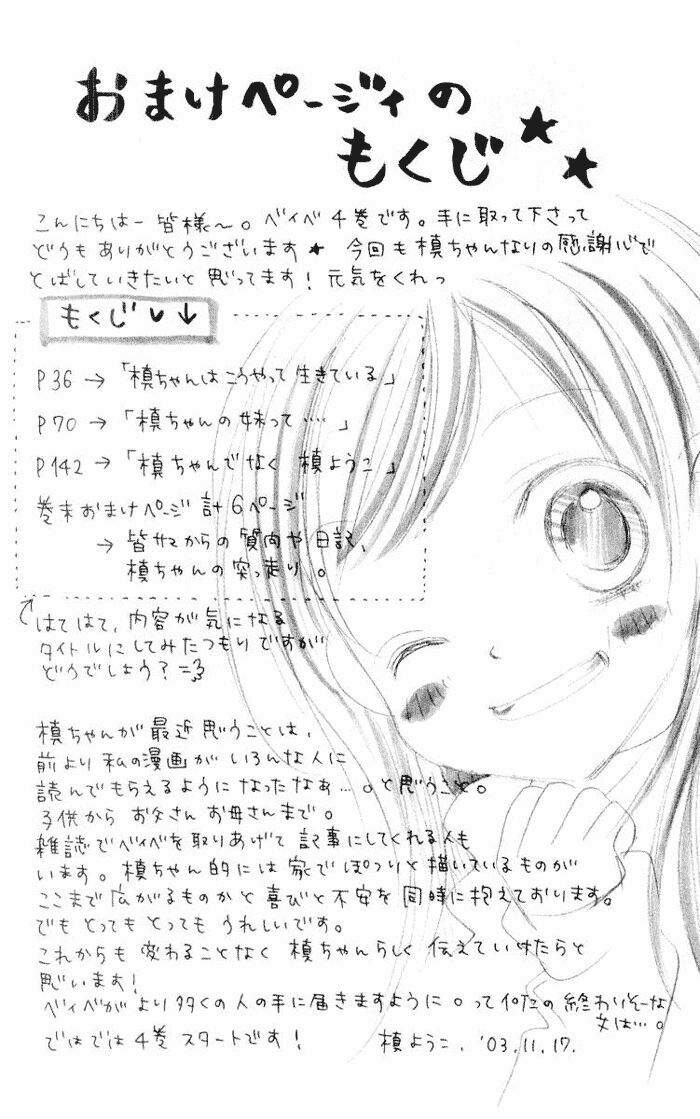 おまけページィの
もくじ★★
こんにちはー皆様〜。ベイベ4巻です。手に取って下さって
どうもありがとうございます★ 今回も槙ちゃんなりの感謝心で
とばしていきたいと思ってます!元気をくれっ
もくじ♥↓
P36→「槙ちゃんはこうやって生きている」
P70→「槙ちゃんの妹って‥‥」
P142→「槙ちゃんでなく 槙ようこ」
巻末おまけページ 計6ページ
→皆サマからの質問や日記、
槙ちゃんの突っ走り。
はてはて、内容が気になる
タイトルにしてみたつもりですが
どうでしょう?
槙ちゃんが最近思うことは、
前より私の漫画がいろんな人に
読んでもらえるようになったなぁ…。と思うこと。
子供からお父さんお母さんまで。
雑誌でベイベを取りあげて記事にしてくれる人も
います。槙ちゃん的には家でぽつりと描いているものが
ここまで広がるものかと喜びと不安を同時に抱えております。
でもとってもとってもうれしいです。
これからも変わることなく槙ちゃんらしく伝えていけたらと
思います!
ベイベがより多くの人の手に届きますように。って何だの終わりそーな
文は…。
ではでは4巻スタートです! 槙ようこ. '03.11.17.